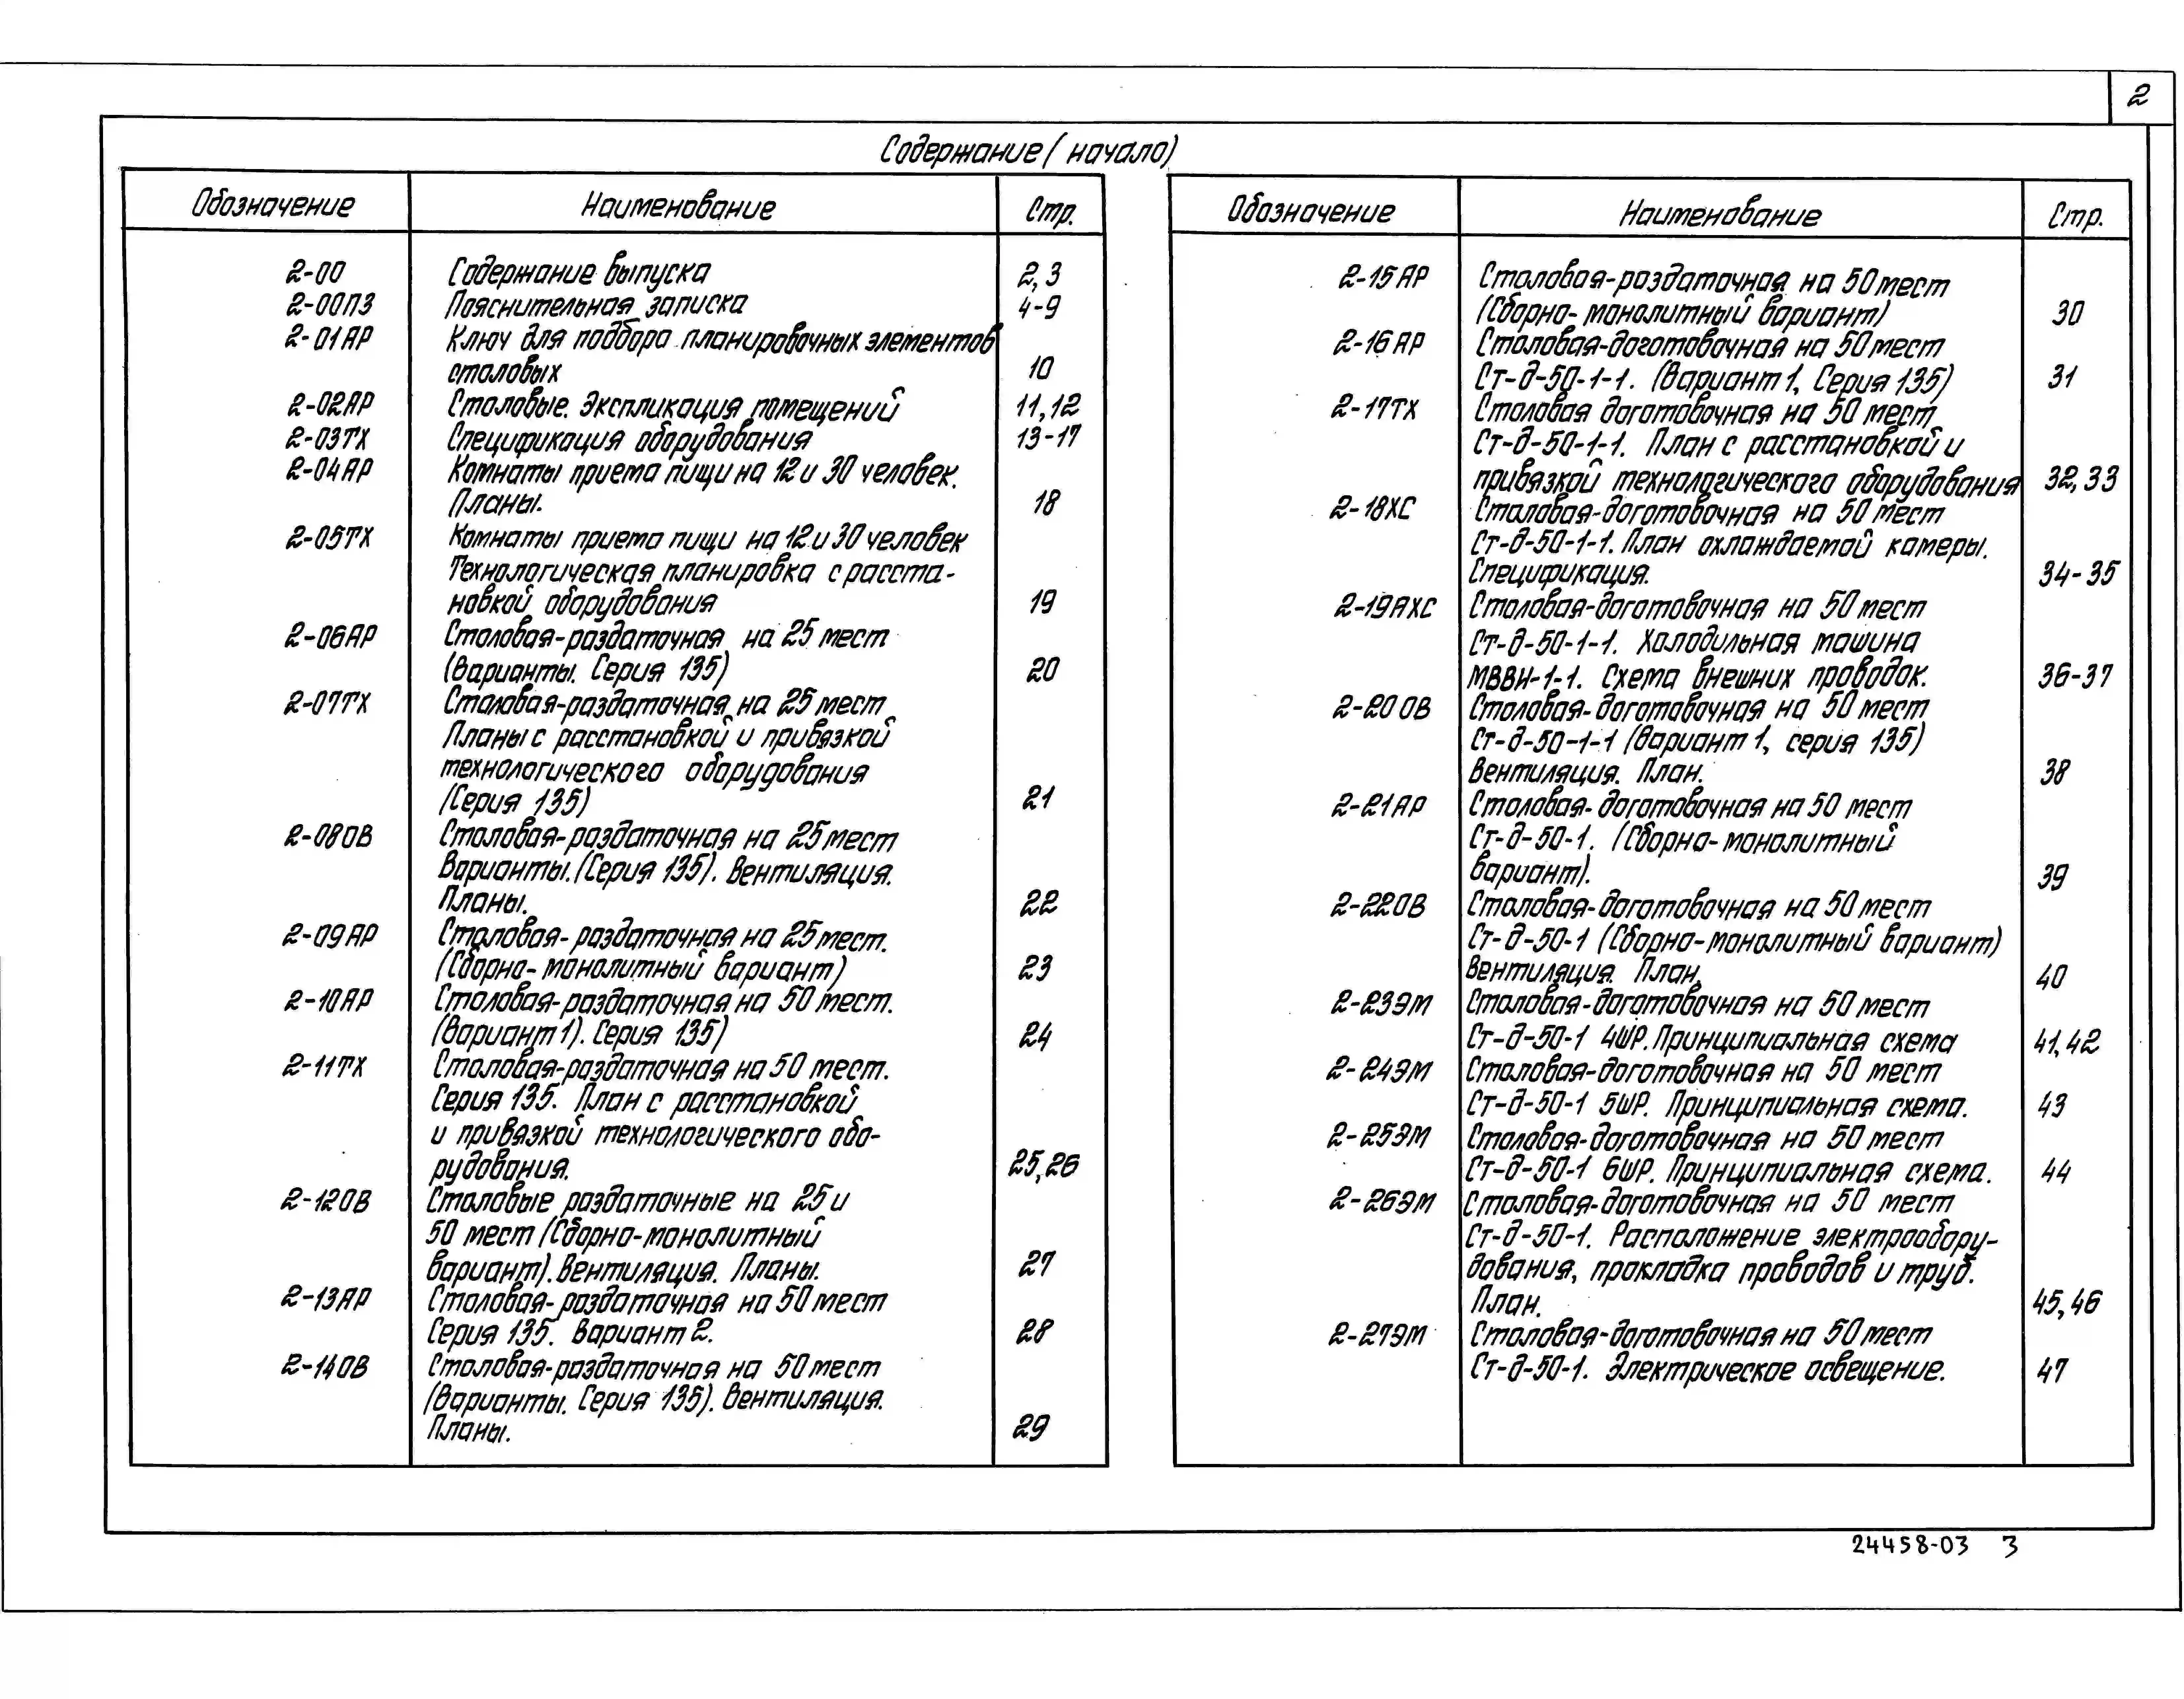 2
Содержание (начало)
Обозначение Наименование Стр.
2-00 Содержание выпуска 2,3
2-00ПЗ Пояснительная записка 4-9
2-01АР Ключ для подбора планировочных элементов
столовых 10
2-02АР Столовые. Экспликация помещений 11,12
2-03ТХ Спецификация оборудования 13-17
2-04АР Комнаты приема пищи на 12 и 30 человек.
Планы. 18
2-05ТХ Комнаты приема пищи на 12 и 30 человек
Технологическая планировка с расста-
новкой оборудования 19
2-06АР Столовая-раздаточная на 25 мест
(Варианты. Серия 135) 20
2-07ТХ Столовая-раздаточная на 25 мест
Планы с расстановкой и привязкой
технологического оборудования
(Серия 135) 21
2-08ОВ Столовая-раздаточная на 25 мест
Варианты. (Серия 135). Вентиляция.
Планы. 22
2-09АР Столовая-раздаточная на 25 мест.
(Сборно-монолитный вариант) 23
2-10АР Столовая-раздаточная на 50 мест.
(Вариант 1). Серия 135) 24
2-11ТХ Столовая-раздаточная на 50 мест.
Серия 135. План с расстановкой
и привязкой технологического обо-
рудования. 25,26
2-12ОВ Столовые раздаточные на 25 и
50 мест (Сборно-монолитный
вариант). Вентиляция. Планы. 27
2-13АР Столовая-раздаточная на 50 мест
Серия 135. Вариант 2. 28
2-14ОВ Столовая-раздаточная на 50 мест
(Варианты. Серия 135). Вентиляция.
Планы. 29
Обозначение Наименование Стр.
2-15АР Столовая-раздаточная на 50 мест
(Сборно-монолитный вариант) 30
2-16АР Столовая-доготовочная на 50 мест
Ст-д-50-1-1. (Вариант 1, Серия 135) 31
2-17ТХ Столовая доготовочная на 50 мест
Ст-д-50-1-1. План с расстановкой и
привязкой технологического оборудования 32,33
2-18ХС Столовая-доготовочная на 50 мест
Ст-д-50-1-1. План охлаждаемой камеры.
Спецификация. 34-35
2-19АХС Столовая-доготовочная на 50 мест
Ст-д-50-1-1. Холодильная машина
МВВН-1-1. Схема внешних проводок. 36-37
2-20ОВ Столовая-доготовочная на 50 мест
Ст-д-50-1-1 (Вариант 1, серия 135)
Вентиляция. План. 38
2-21АР Столовая-доготовочная на 50 мест
Ст-д-50-1. (Сборно-монолитный
вариант). 39
2-22ОВ Столовая-доготовочная на 50 мест
Ст-д-50-1 (Сборно-монолитный вариант)
Вентиляция. План. 40
2-23ЭМ Столовая-доготовочная на 50 мест
Ст-д-50-1 4ШР. Принципиальная схема 41,42
2-24ЭМ Столовая-доготовочная на 50 мест
Ст-д-50-1 5ШР. Принципиальная схема. 43
2-25ЭМ Столовая-доготовочная на 50 мест
Ст-д-50-1 6ШР. Принципиальная схема. 44
2-26ЭМ Столовая-доготовочная на 50 мест
Ст-д-50-1. Расположение электрообору-
дования, прокладка проводов и труб.
План. 45,46
2-27ЭМ Столовая-доготовочная на 50 мест
Ст-д-50-1. Электрическое освещение. 47
24458-03 3